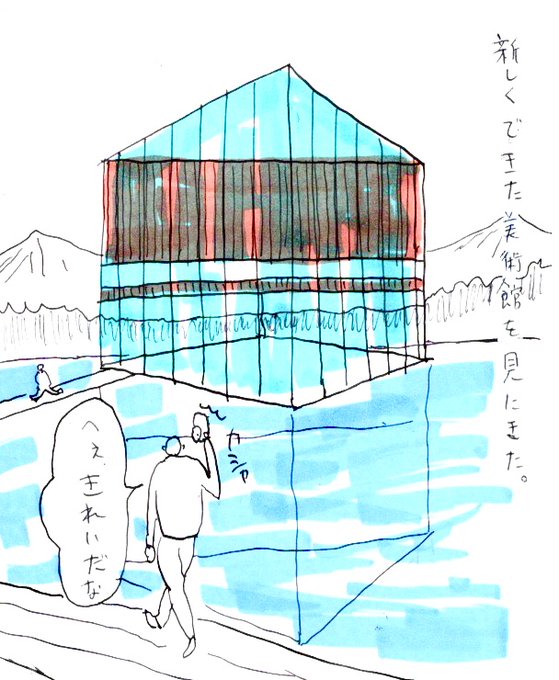 新しくできた美術館を見にきた。
カシャ
へぇ、きれいだな